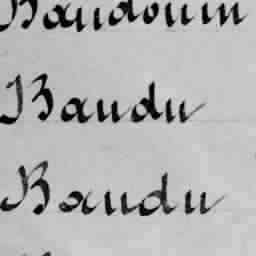 Baudouin
Baudu
Baudu